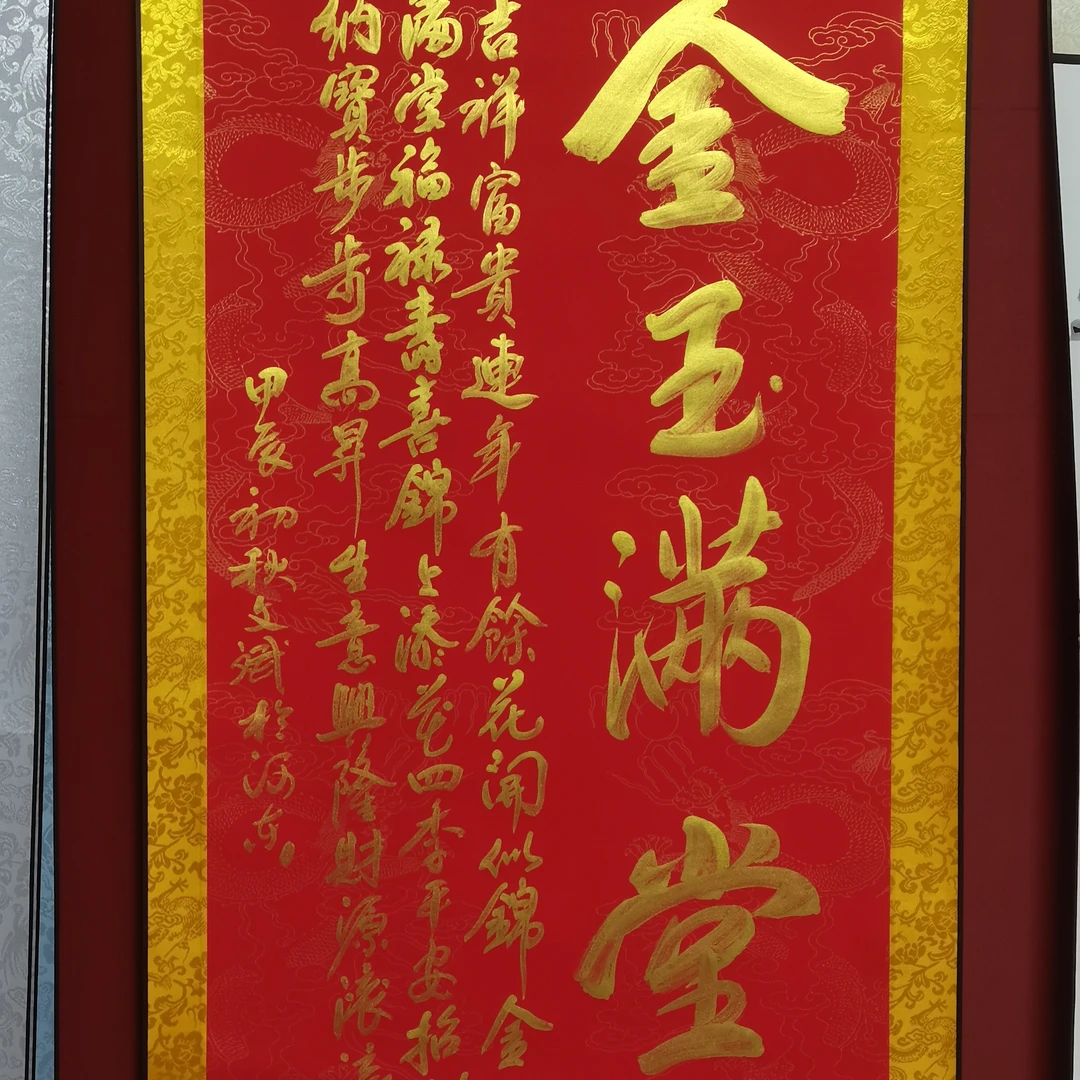 金玉满堂
吉祥富貴連年有餘花開似錦金
满堂福禄壽喜錦上添花四季平安招
纳寶步步高昇生意興隆財源滚滚
甲辰初秋文斌於河东